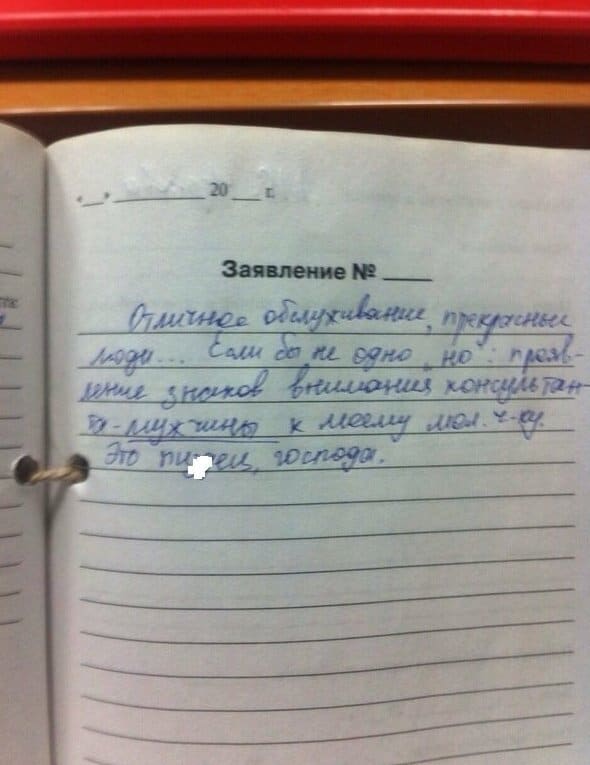 «__» ________ 20 ___ г.
Заявление № ____
Отличное обслуживание, прекрасные
люди... Если бы не одно „но": прояв-
ление знаков внимания консультан-
та-мужчины к моему мол. ч-ку.
Это пи ец, господа.